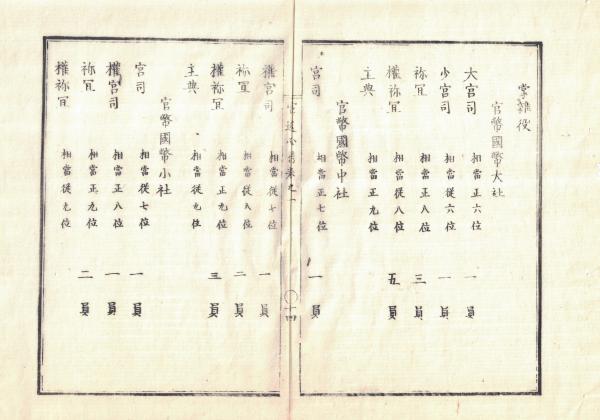 掌雜役
官幣國幣大社
大宮司 相當正六位 一員
少宮司 相當從六位 一員
祢冝 相當正八位 三員
權祢冝 相當從八位 五員
主典 相當正九位
官幣國幣中社
宮司 相當正七位 一員
卷之一 〇十四
權宮司 相當從七位 一員
祢冝 相當從八位 二員
權祢冝 相當正九位 三員
主典 相當從九位
官幣國幣小社
宮司 相當從七位 一員
權宮司 相當正八位 一員
祢冝 相當正九位 二員
權祢冝 相當從九位